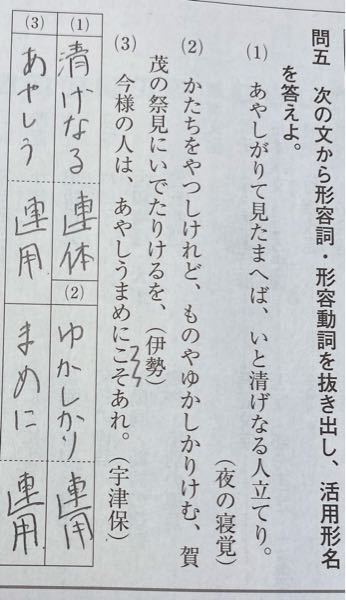 問五　次の文から形容詞・形容動詞を抜き出し、活用形名
を答えよ。
(1)　あやしがりて見たまへば、いと清げなる人立てり。
（夜の寝覚）
(2)　かたちをやつしけれど、ものやゆかしかりけむ、賀
茂の祭見にいでたりけるを、（伊勢）
(3)　今様の人は、あやしうまめにこそあれ。（宇津保）
(1) 清げなる 連体
(2) ゆかしかり 連用
(3) あやしう 連用
まめに 連用